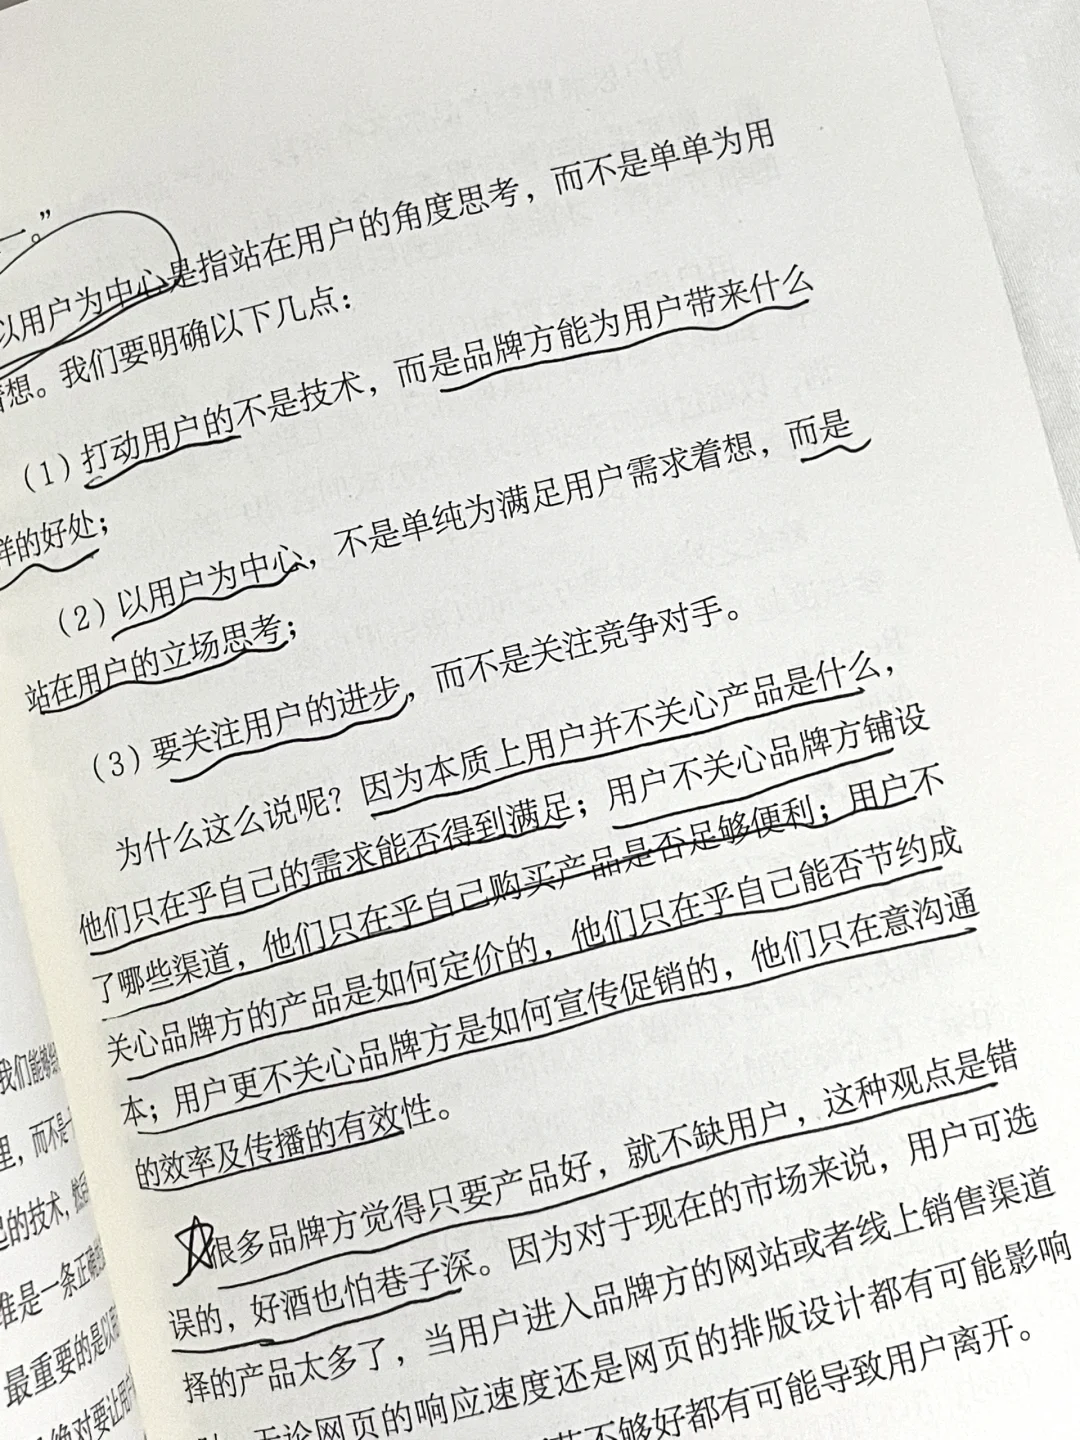 一。”
以用户为中心是指站在用户的角度思考，而不是单单为用
着想。我们要明确以下几点：
（1）打动用户的不是技术，而是品牌方能为用户带来什么
样的好处；
（2）以用户为中心，不是单纯为满足用户需求着想，而是
站在用户的立场思考；
（3）要关注用户的进步，而不是关注竞争对手。
为什么这么说呢？因为本质上用户并不关心产品是什么，
他们只在乎自己的需求能否得到满足；用户不关心品牌方铺设
了哪些渠道，他们只在乎自己购买产品是否足够便利；用户不
关心品牌方的产品是如何定价的，他们只在乎自己能否节约成
本；用户更不关心品牌方是如何宣传促销的，他们只在意沟通
的效率及传播的有效性。
很多品牌方觉得只要产品好，就不缺用户，这种观点是错
误的，好酒也怕巷子深。因为对于现在的市场来说，用户可选
择的产品太多了，当用户进入品牌方的网站或者线上销售渠道
无论网页的响应速度还是网页的排版设计都有可能影响
不够好都有可能导致用户离开。
我们能够
里，而不是
的技术，
是一条正确
最重要的是以
绝对要让用户